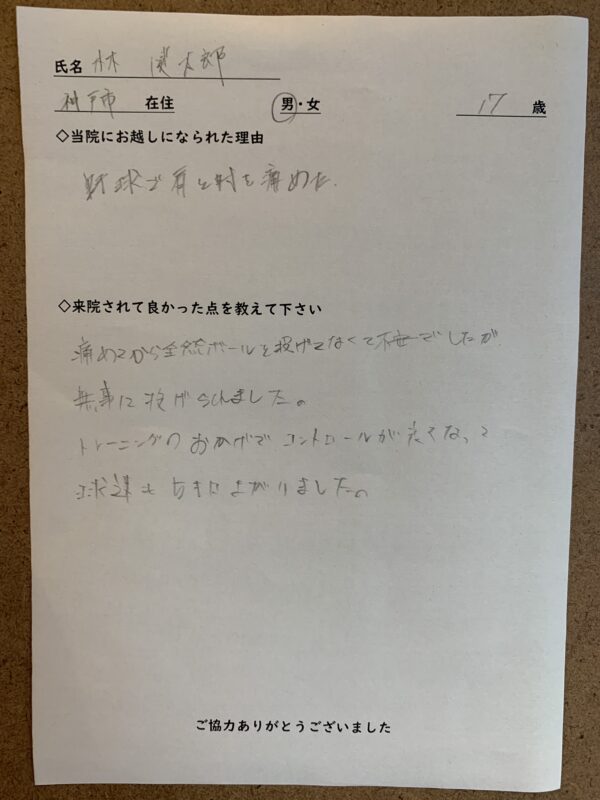 氏名 林 太郎
神戸市 在住 男・女 17 歳
◇当院にお越しになられた理由
野球で肩と肘を痛めた.
◇来院されて良かった点を教えて下さい
痛めてから全然ボールを投げてなくて不安でしたが
無事に投げられました。
トレーニングのおかげでコントロールが良くなって
球速も 上がりました。
ご協力ありがとうございました